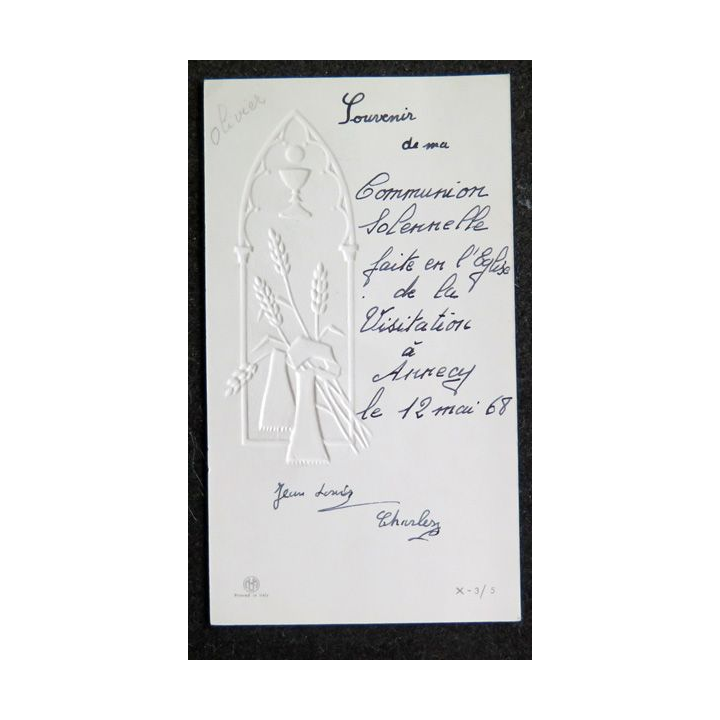 Olivier
Souvenir
de ma
Communion
Solennelle
faite en l'Eglise
de la
Visitation
à
Annecy
le 12 mai 68
Jean Louis
Charles
X-3/5